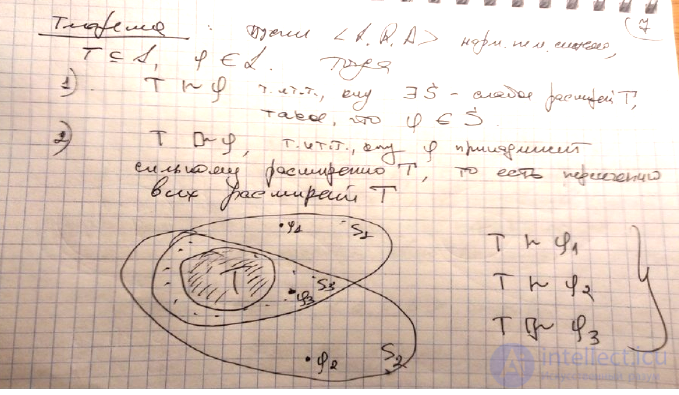 7
Теорема : Пусть <L, R, A> норм. т.м. система,
T ⊆ L, φ ∈ L. Тогда
1) T ⊢ φ т.и т.т., когда ∃ S - слабое расширен T,
такое, что φ ∈ S.
2) T ⊢ φ, т.и т.т., когда φ принадлежит
сильному расширению T, то есть пересечению
всех расширений T
φ1 S1
T
φ3 S3
φ2 S2
T ⊢ φ1
T ⊢ φ2
T ⊢ φ3
intellect.icu